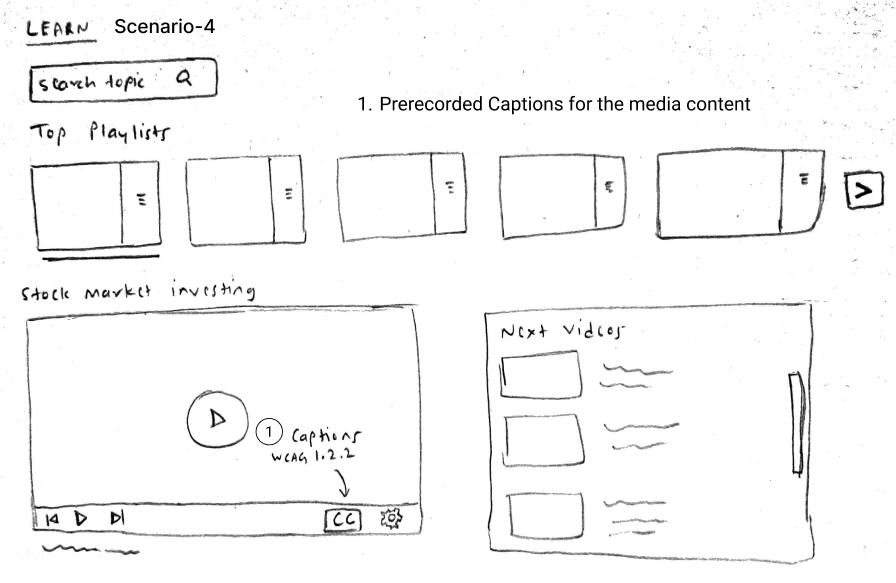 LEARN Scenario-4
search topic
1. Prerecorded Captions for the media content
Top Playlists
>
Stock market investing
Next videos
1 Captions
WCAG 1.2.2
CC